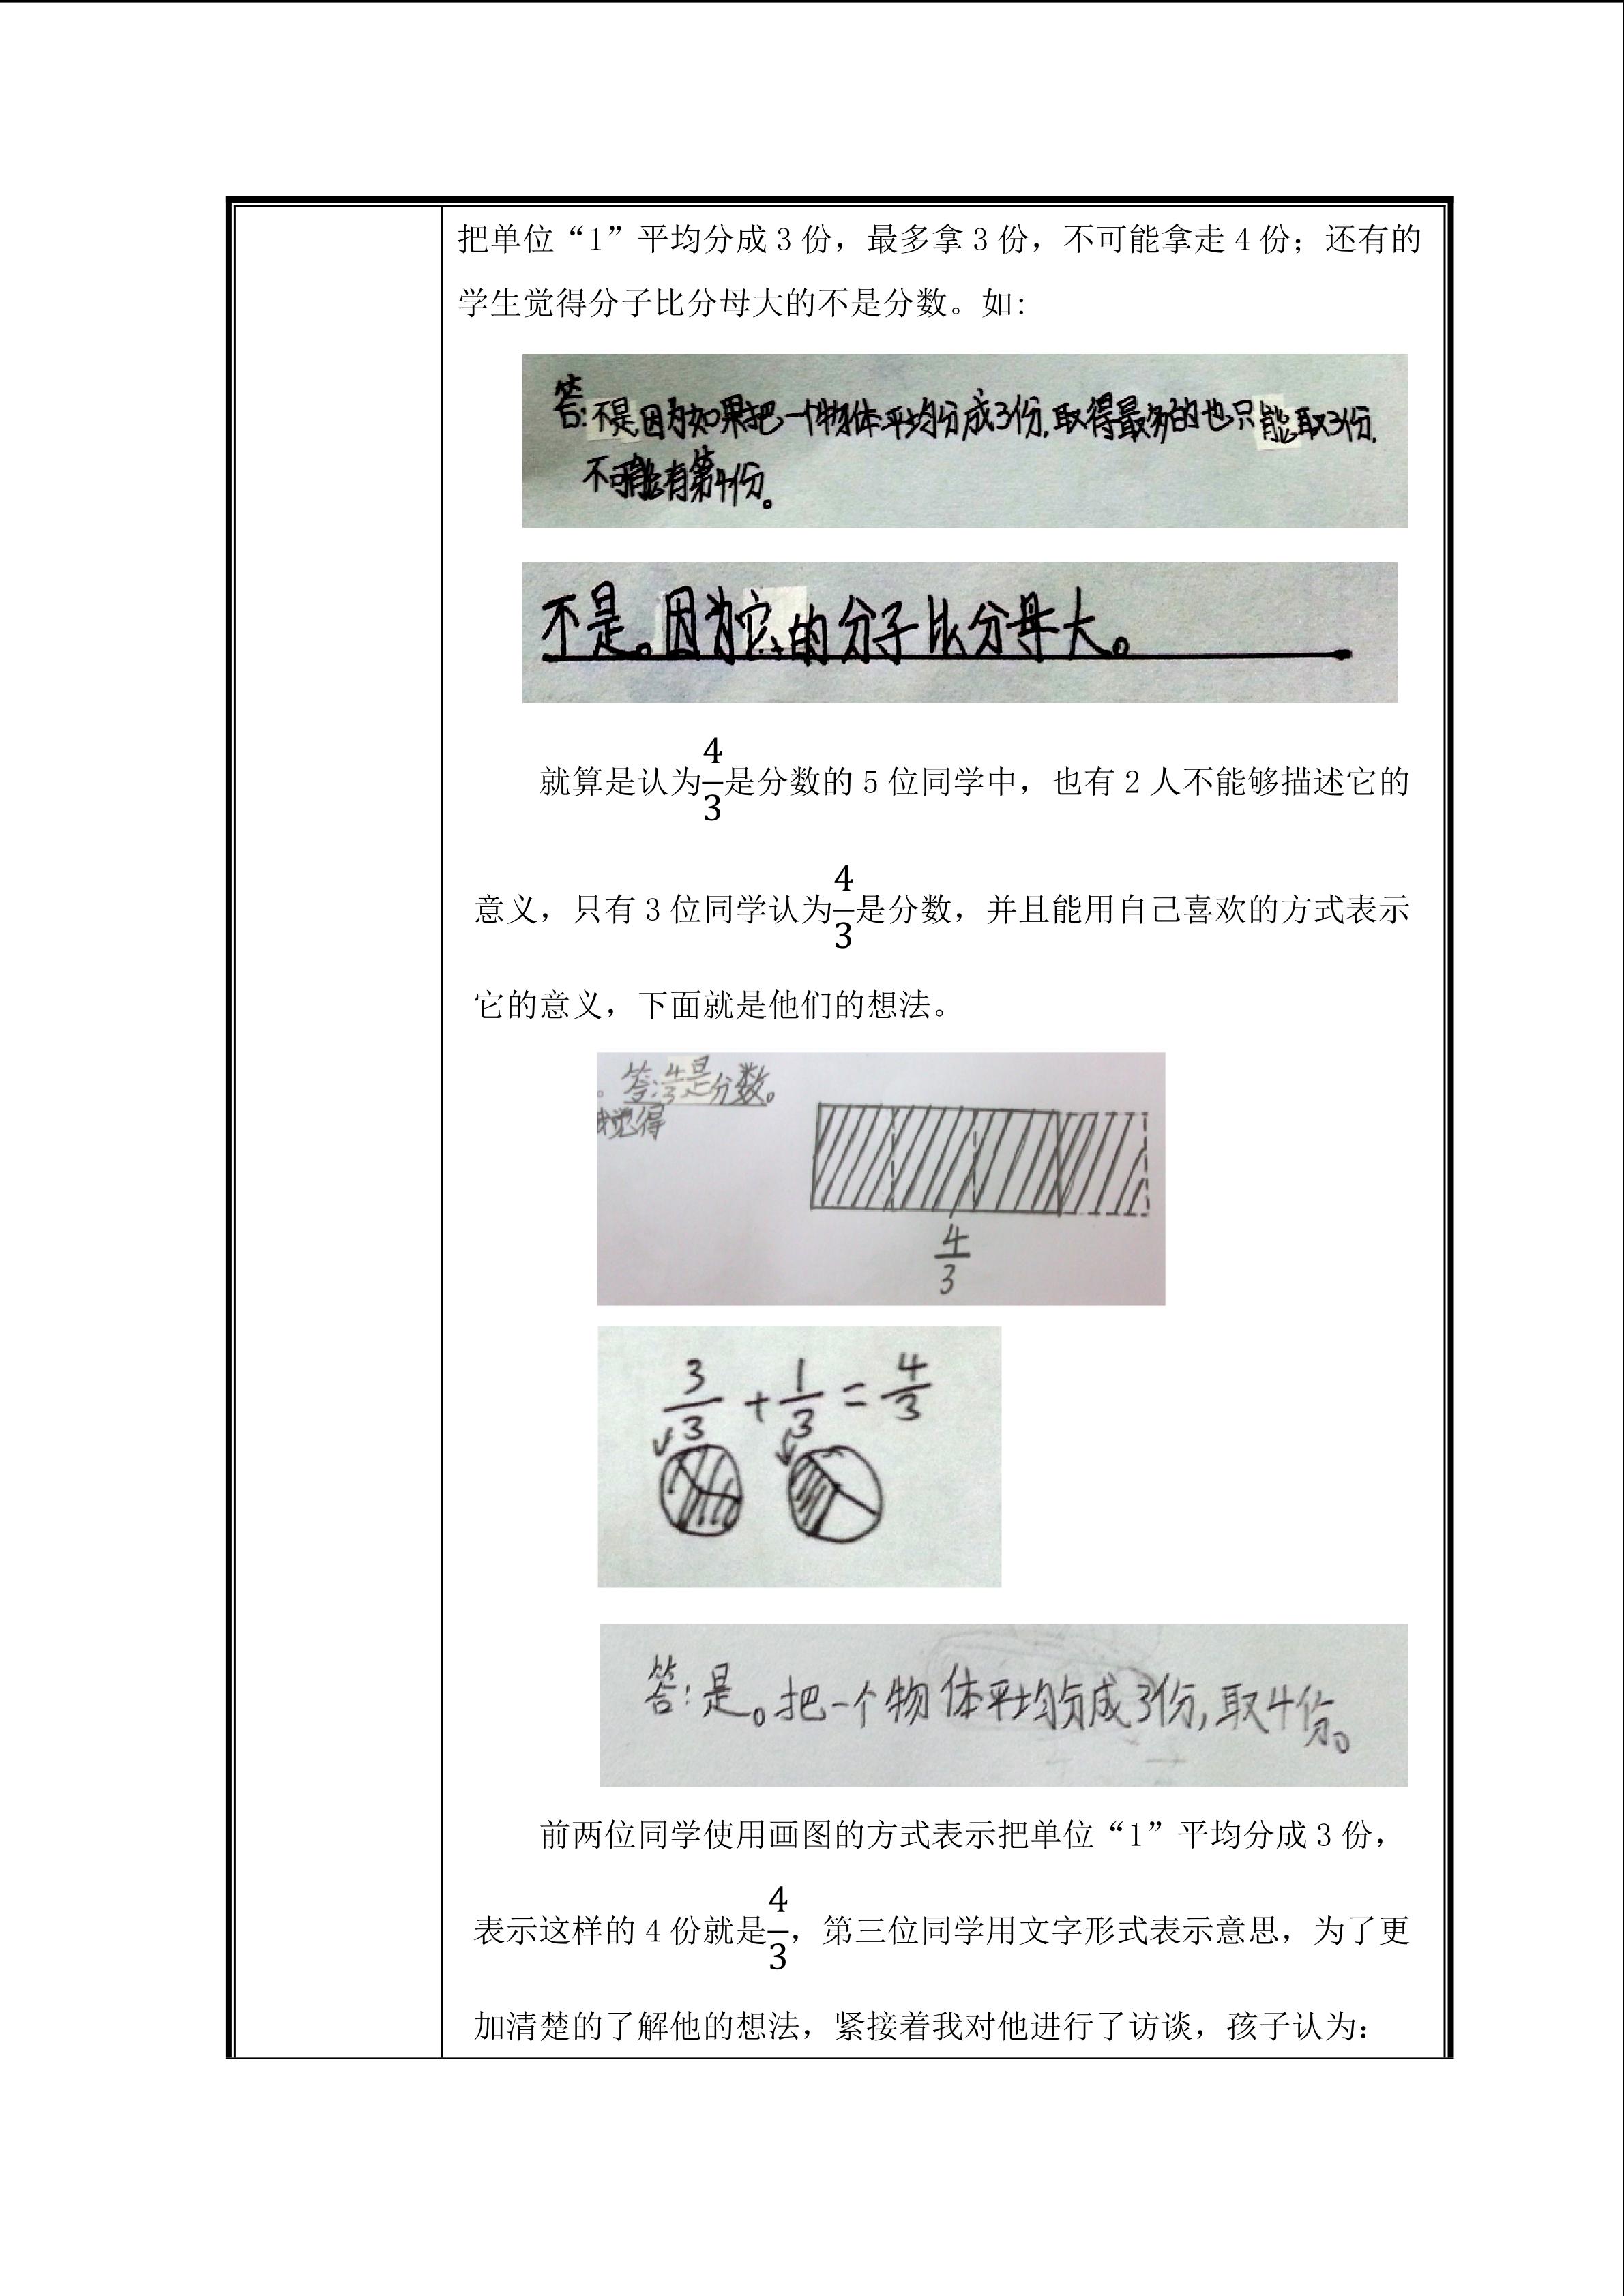 把单位“1”平均分成 3 份，最多拿 3 份，不可能拿走 4 份；还有的
学生觉得分子比分母大的不是分数。如：
答：不是因为如果把一个物体平均分成3份，取得最多的也只能取3份，
不可能有第4份。
不是。因为它的分子比分母大。
就算是认为4/3是分数的 5 位同学中，也有 2 人不能够描述它的
意义，只有 3 位同学认为4/3是分数，并且能用自己喜欢的方式表示
它的意义，下面就是他们的想法。
。答：4/3是分数。
我觉得
4/3
3/3 + 1/3 = 4/3
答：是。把一个物体平均分成3份，取4份。
前两位同学使用画图的方式表示把单位“1”平均分成 3 份，
表示这样的 4 份就是4/3，第三位同学用文字形式表示意思，为了更
加清楚的了解他的想法，紧接着我对他进行了访谈，孩子认为：